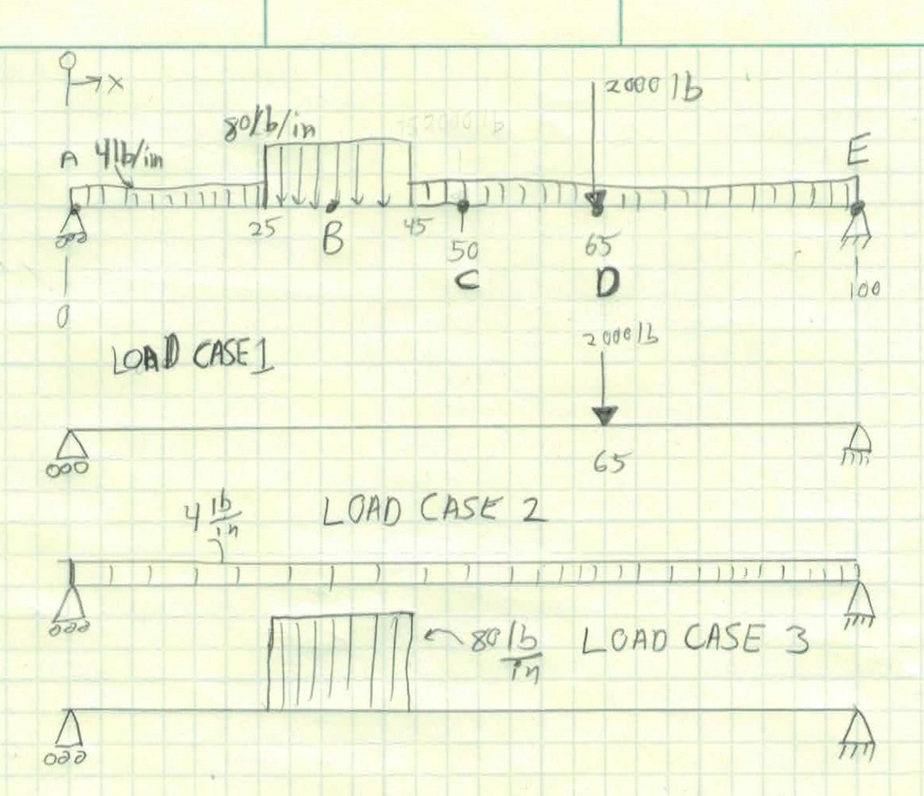 →x
2000 lb
80 lb/in
A 4 lb/in
E
25 B 45
50 65
C D
0
100
LOAD CASE 1
2000 lb
65
4 lb/in LOAD CASE 2
80 lb/in LOAD CASE 3